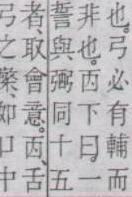 也。弓必有輔而
非也。㐁下曰。一
誓與弼同十五
者、取會意。㐁、舌
弓之檠、如口中